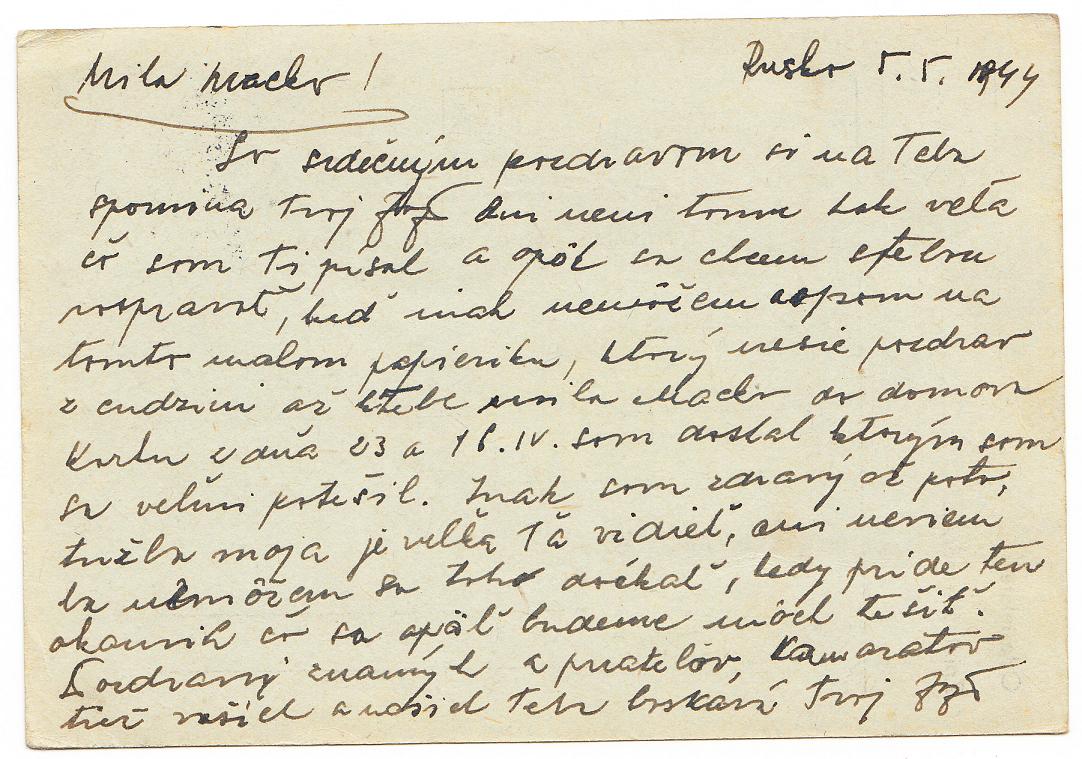 Milá Macko! Rusko 5. 5. 1944
So srdečným pozdravom si na Teba
spomína tvoj ani neni tomu tak veľa
čo som Ti písal a opäť sa chcem s tebou
rozpravať, buď inak nemôžem aspom na
tomto malom papieriku, ktorý nesie pozdrav
z cudzini až ktebe milá Macko do domova
Kartu z dňa 23 a 18. IV. som dostal ktorým som
sa velmi potešil. Inak som zdravý až poto,
tužba moja je velká Ťa vidieť, ani neviem
ba nemôžem sa toho dočkať, kedy príde ten
okamih čo sa opäť budeme môcť tešiť.
Pozdravuj znamých a priatelov, kamaratov
tiež vašich a našich Teba boskává tvoj